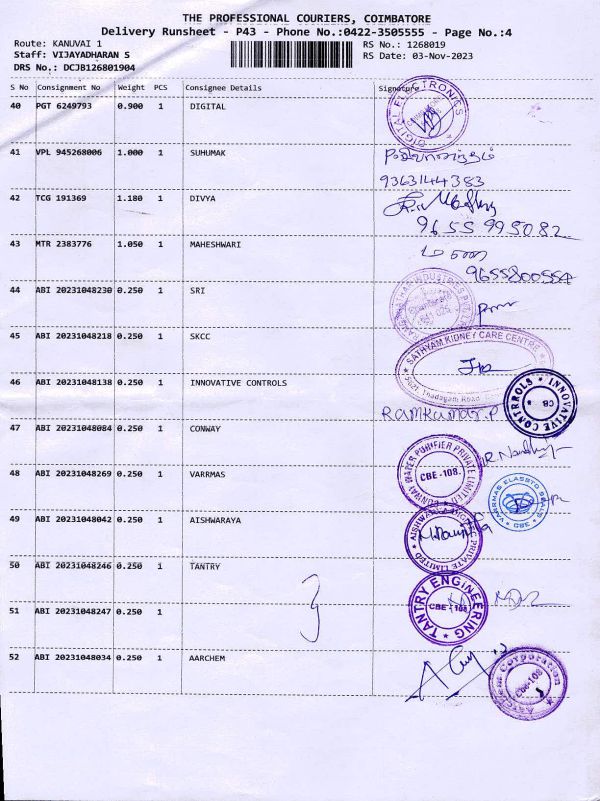 THE PROFESSIONAL COURIERS, COIMBATORE
Delivery Runsheet - P43 - Phone No.:0422-3505555 - Page No.:4
Route: KANUVAI 1 RS No.: 1268019
Staff: VIJAYADHARAN S RS Date: 03-Nov-2023
DRS No.: DCJB126801904
S No Consignment No Weight PCS Consignee Details Signature
40 PGT 6249793 0.900 1 DIGITAL
DIGITAL ELECTRONICS
41 VPL 945268006 1.000 1 SUHUMAK
9363144383
42 TCG 191369 1.180 1 DIVYA
9655995082
43 MTR 2383776 1.050 1 MAHESHWARI
9655800554
44 ABI 20231048230 0.250 1 SRI
45 ABI 20231048218 0.250 1 SKCC
SATHYAM KIDNEY CARE CENTRE
Thadagam Road
46 ABI 20231048138 0.250 1 INNOVATIVE CONTROLS
INNOVATIVE CONTROLS CB
Ramkumar.P
47 ABI 20231048084 0.250 1 CONWAY
CONWAY WATER PURIFIER PRIVATE LIMITED CBE-108.
48 ABI 20231048269 0.250 1 VARRMAS
CBE
49 ABI 20231048042 0.250 1 AISHWARAYA
PRIVATE LIMITED
50 ABI 20231048246 0.250 1 TANTRY
TANTRY ENGINEERING CBE-108
51 ABI 20231048247 0.250 1
52 ABI 20231048034 0.250 1 AARCHEM
Aarchem Corporation CBE-108